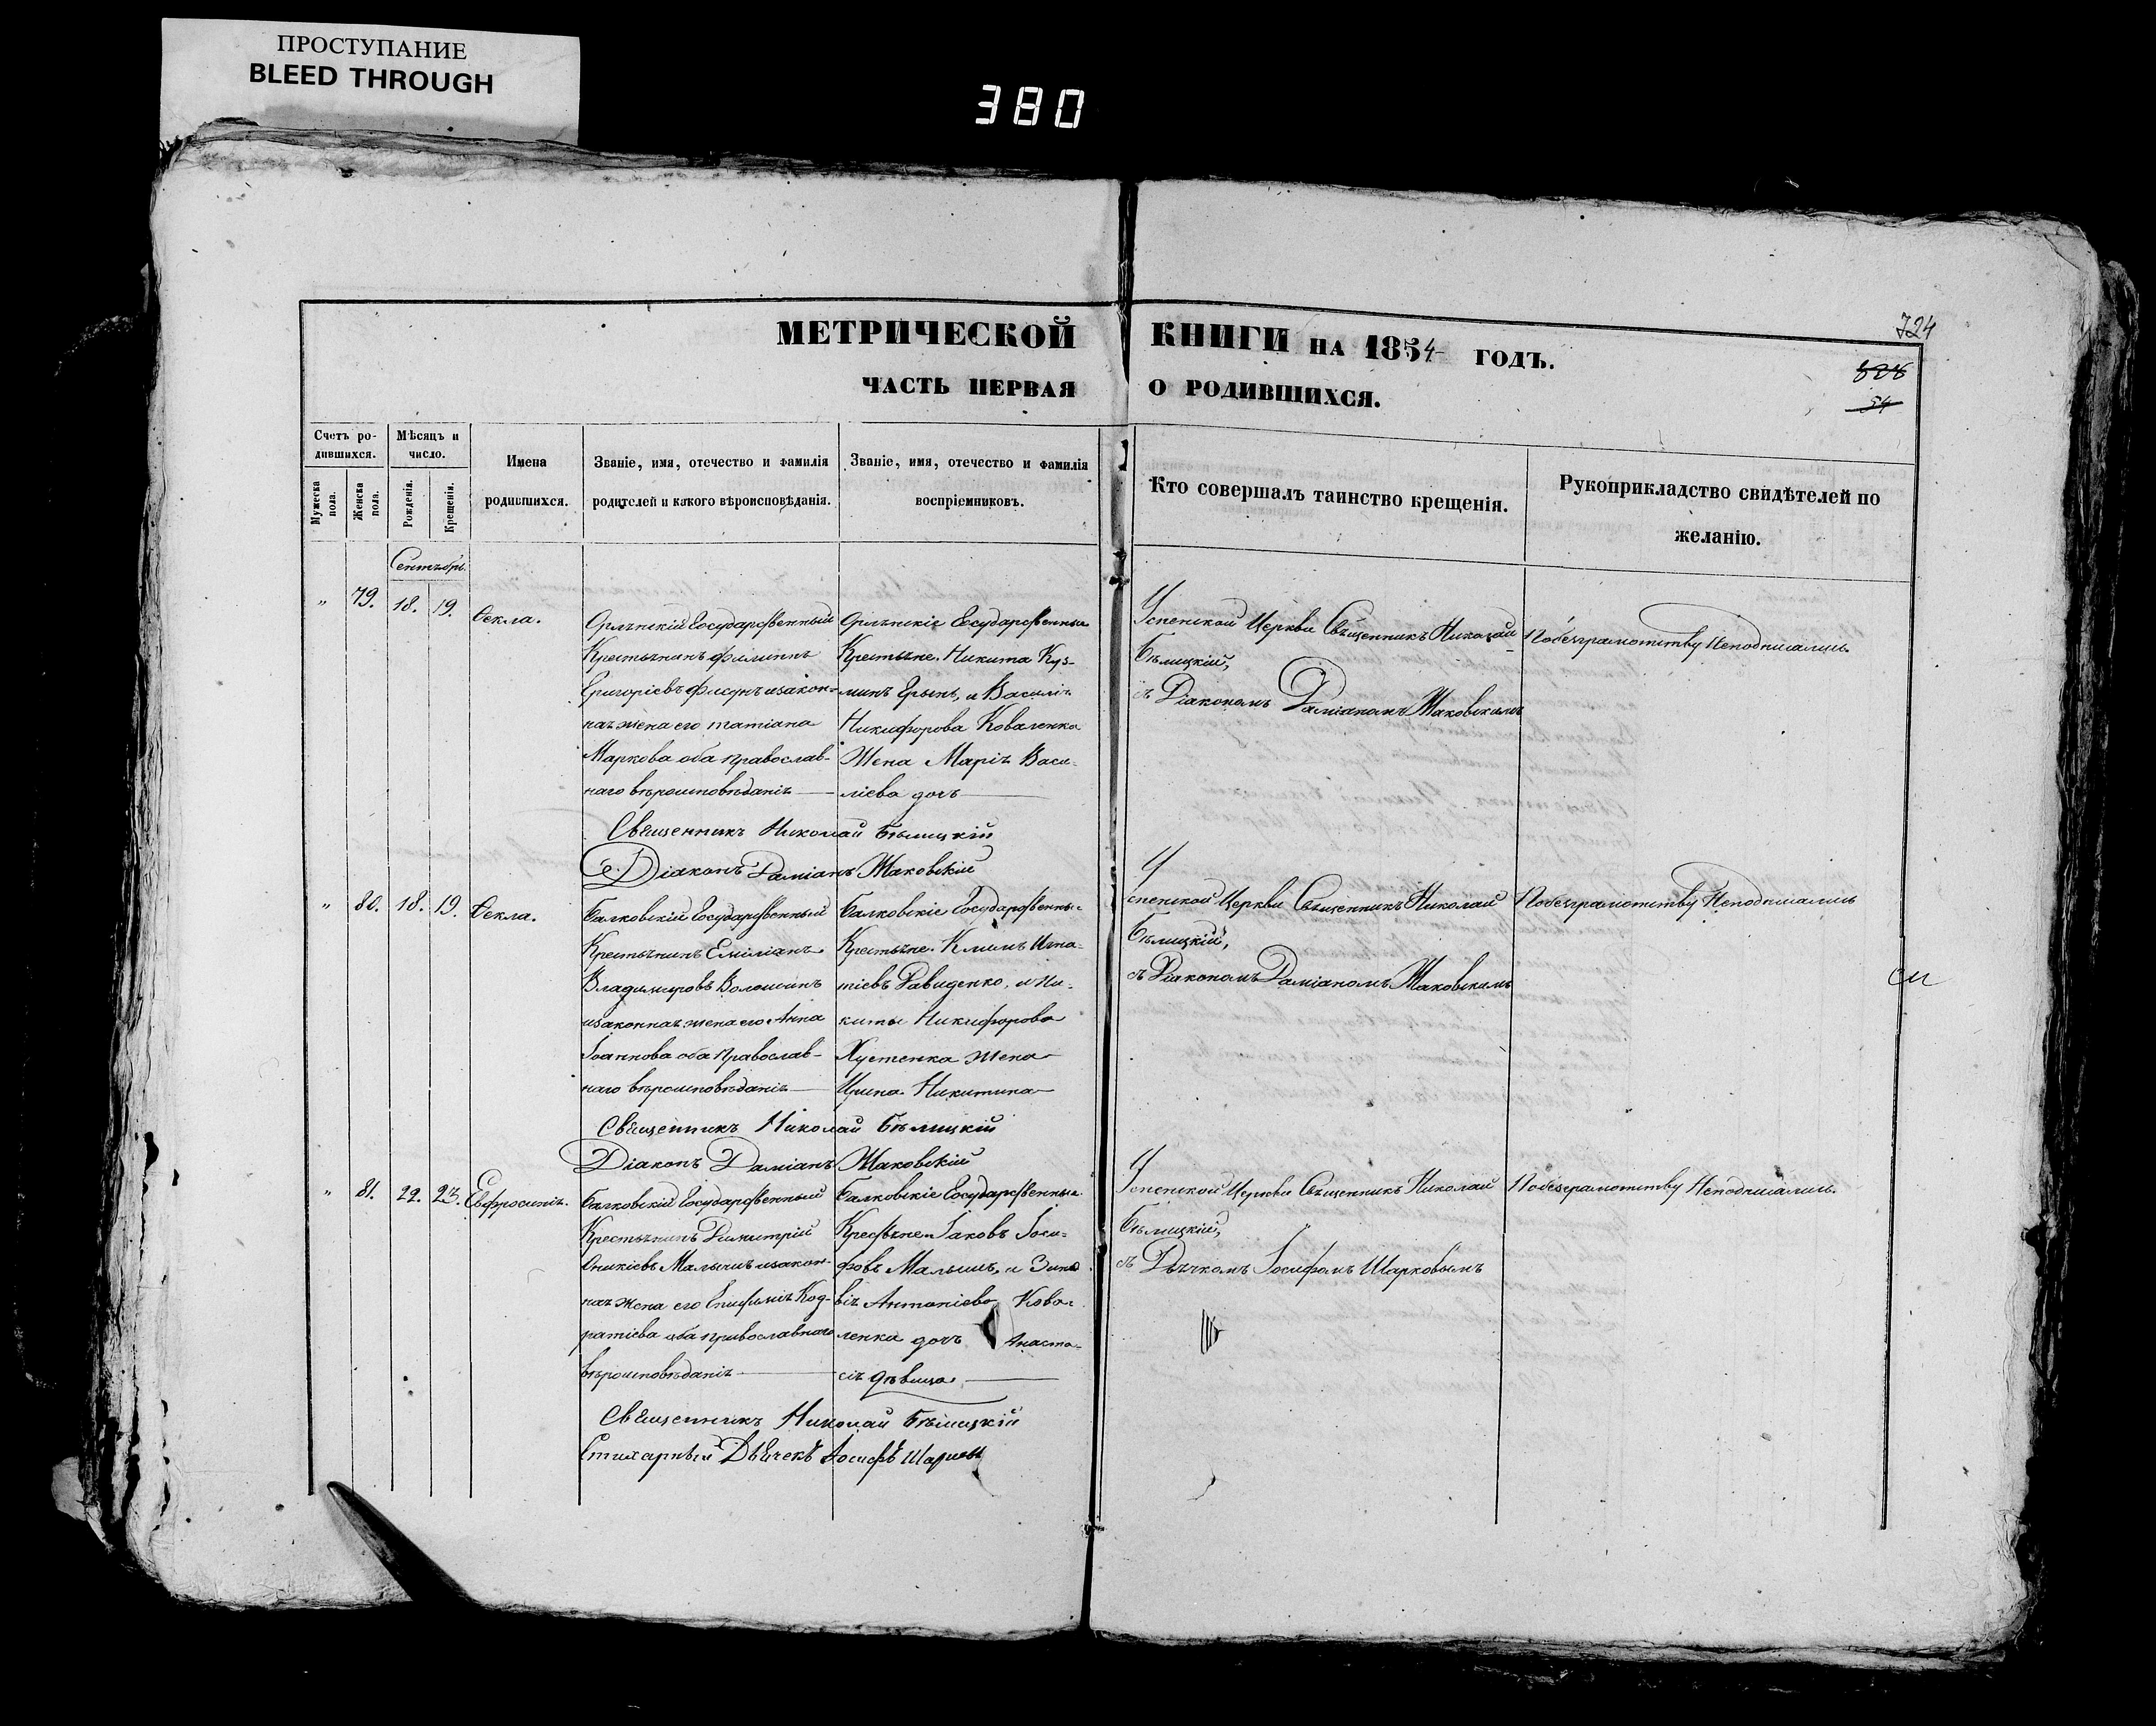 ПРОСТУПАНИЕ
BLEED THROUGH
380
724
МЕТРИЧЕСКОЙ КНИГИ НА 1854 ГОДЪ.
ЧАСТЬ ПЕРВАЯ О РОДИВШИХСЯ.
54
Счетъ ро-
дившихся.
Мужеска пола.
Женска пола.
Мѣсяцъ и
число.
Рожденія.
Крещенія.
Имена
родившихся.
Званіе, имя, отечество и фамилія
родителей и какого вѣроисповѣданія.
Званіе, имя, отечество и фамилія
воспріемниковъ.
Кто совершалъ таинство крещенія.
Рукоприкладство свидѣтелей по
желанію.
Сентябрь.
" 79. 18. 19. Ѳекла.
Орлянскій Государственный
Крестьянинъ Филиппъ
Григоріевъ изакон-
ная жена его Татіана
Маркова оба православ-
наго вѣроисповѣданія
Орлянскіе Государственные
Крестьяне. Никита Куз-
минъ и Василія
Никифорова Коваленка
Жена Марія Васи-
ліева дочь
Успенской Церкви Священникъ Николай
Бѣлицкій,
съ Діакономъ Даміаномъ Жаковскимъ
Побезграмотству Неподписались.
Священникъ Николай Бѣлицкій
Діаконъ Даміанъ Жаковскій
" 80. 18. 19. Ѳекла.
Балковскій Государственный
Крестьянинъ Емиліанъ
Владимировъ Волошинъ
изаконная жена его Анна
Іоаннова оба православ-
наго вѣроисповѣданія
Балковскіе Государственные
Крестьяне. Климъ Игна-
тіевъ Давиденко, и Ни-
киты Никифорова
Хустенка жена
Ирина Никитина
Успенской Церкви Священникъ Николай
Бѣлицкій,
съ Діакономъ Даміаномъ Жаковскимъ
Побезграмотству Неподписались
Священникъ Николай Бѣлицкій
Діаконъ Даміанъ Жаковскій
" 81. 22. 23. Евфросинія.
Балковскій Государственный
Крестьянинъ Димитрій
Оникіевъ Малышъ изакон-
ная жена его Епифмія Код-
ратіева оба православнаго
вѣроисповѣданія
Балковскіе Государственные
Крестьяне Іаковъ Іоси-
фовъ Малышъ, и Зино
вія Антоніева Кова-
ленка дочь Анаста-
сія дѣвица
Успенской Церкви Священникъ Николай
Бѣлицкій,
съ Дьячкомъ Іосифомъ Шарковымъ
Побезграмотству Неподписались.
Священникъ Николай Бѣлицкій
Стихарный Дьячекъ Іосифъ